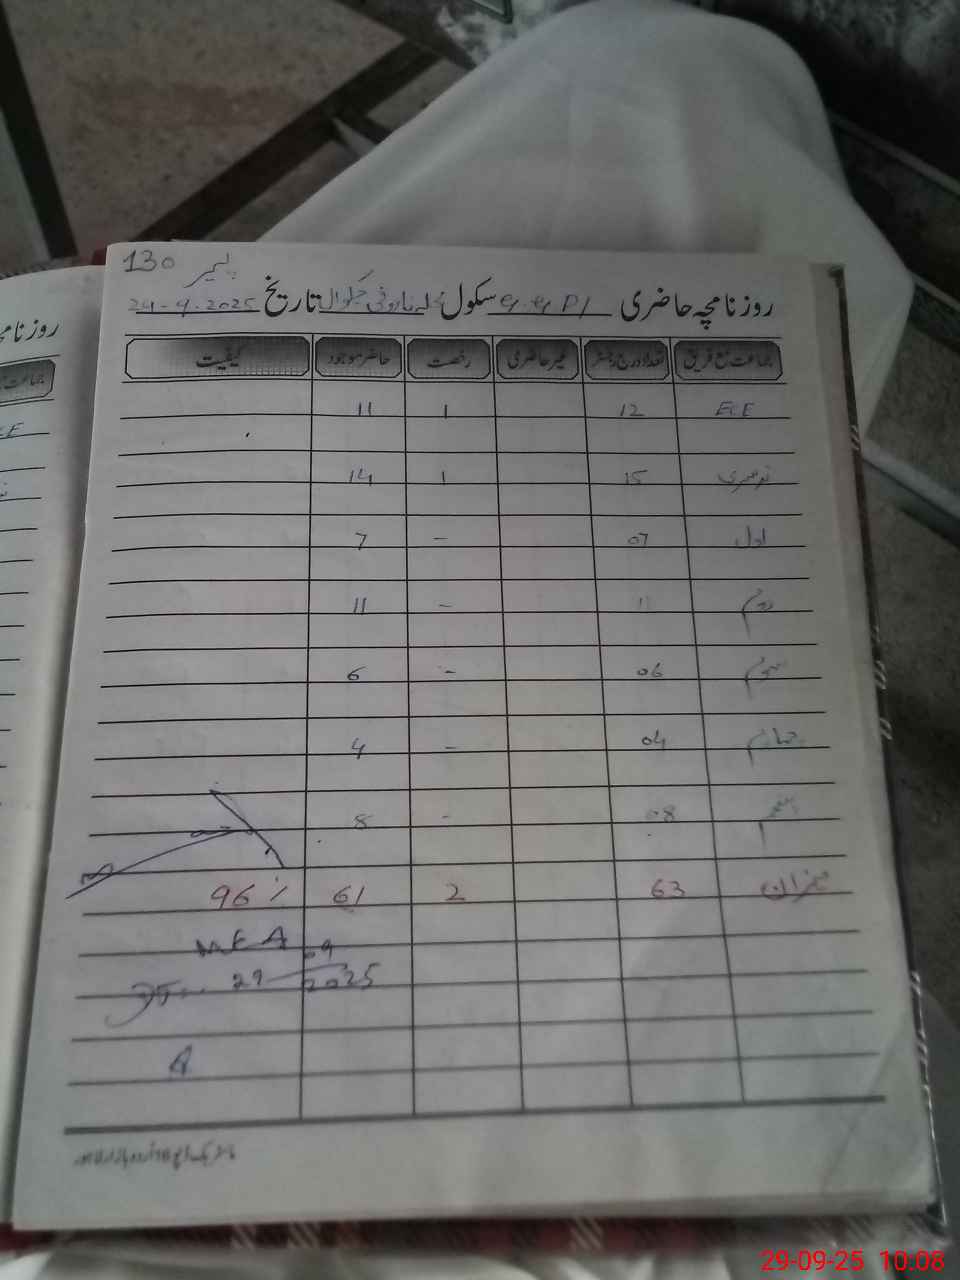 130 پلیمر
روزنامچہ حاضری سکول تاریخ 24-9-2025
جماعت مع فریق تعداد درج رجسٹر غیر حاضری رخصت حاضر موجود کیفیت
ECE 12 1 11
نرسری 15 1 14
اول 07 - 7
دوم 11 - 11
سوم 06 - 6
چہارم 04 - 4
پنجم 08 - 8
میزان 63 2 61 96٪
MEA
29 09 2025
روزنامچہ
جماعت
29-09-25 10:08